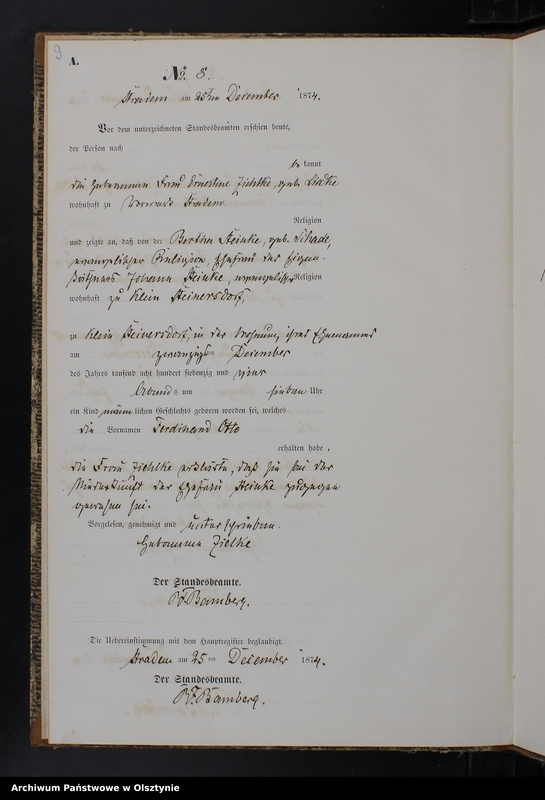 9
A.
No. 8.
Stradem am 25ten December 1874.
Vor dem unterzeichneten Standesbeamten erschien heute,
der Person nach
be kannt
die Hebamme Frau Ernestine Zielke, geb. Liedke
wohnhaft zu Vorwerk Stradem
Religion
und zeigte an, daß von der Bertha Steinke, geb. Schade,
evangelischer Religion, Ehefrau des Eigen-
käthners Johann Steinke, evangelischer Religion
wohnhaft zu Klein Steinersdorf,
zu Klein Steinersdorf, in der Wohnung ihres Ehemannes
am zwanzigsten December
des Jahres tausend acht hundert siebenzig und vier
Abends um sieben Uhr
ein Kind männlichen Geschlechts geboren worden sei, welches
die Vornamen Ferdinand Otto
erhalten habe,
die Frau Zielke erklärte, daß sie bei der
Niederkunft der Ehefrau Steinke zugegen
gewesen sei.
Vorgelesen, genehmigt und unterschrieben.
Hebamme Zielke
Der Standesbeamte.
Bamberg.
Die Uebereinstimmung mit dem Hauptregister beglaubigt.
Stradem am 25 ten December 1874.
Der Standesbeamte.
Bamberg.
Archiwum Państwowe w Olsztynie